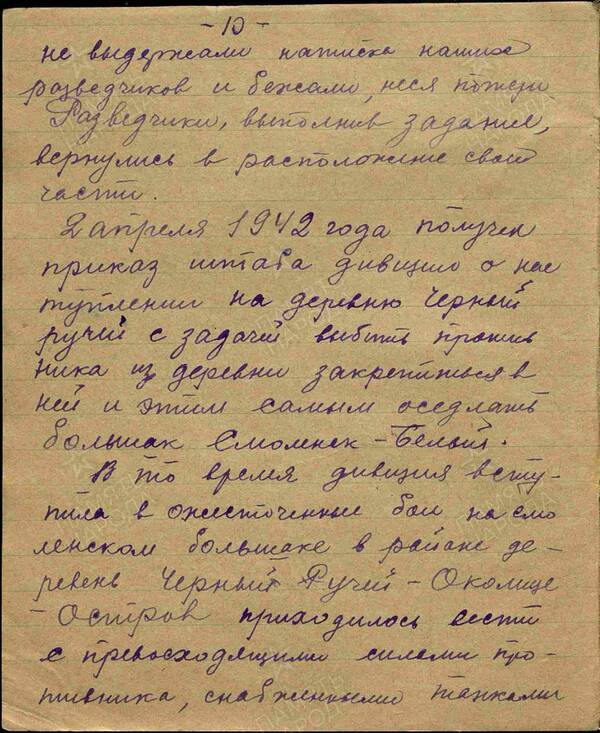 - 10 -
не выдержали натиска наших
разведчиков и бежали, неся потери
Разведчики, выполнив задание,
вернулись в расположение свой
части.
2 апреля 1942 года получен
приказ штаба дивизии о нас
туплении на деревню Черный
ручей с задачей выбить против
ника из деревни закрепиться в
ней и этим самым оседлать
большак Смоленск - Белый.
В то время дивизия всту-
пила в ожесточенные бои на смо
ленском большаке в районе де-
ревень Черный Ручей - Околице
- Остров приходилось вести
с превосходящими силами про-
тивника, снабженными танками